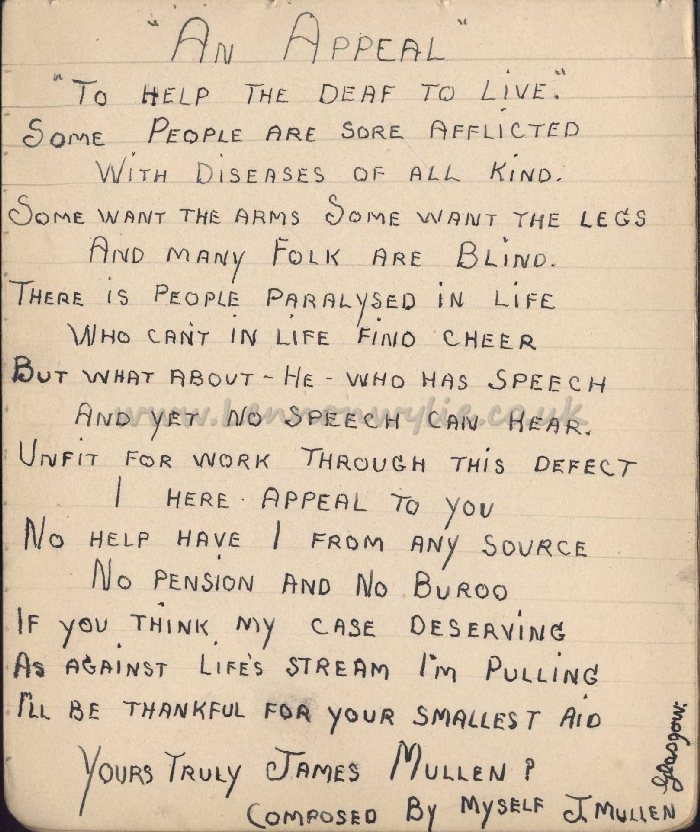 "AN APPEAL"
"TO HELP THE DEAF TO LIVE."
SOME PEOPLE ARE SORE AFFLICTED
WITH DISEASES OF ALL KIND.
SOME WANT THE ARMS SOME WANT THE LEGS
AND MANY FOLK ARE BLIND.
THERE IS PEOPLE PARALYSED IN LIFE
WHO CAN'T IN LIFE FIND CHEER
BUT WHAT ABOUT - HE - WHO HAS SPEECH
AND YET NO SPEECH CAN HEAR.
www.lennonwylie.co.uk
UNFIT FOR WORK THROUGH THIS DEFECT
I HERE APPEAL TO YOU
NO HELP HAVE I FROM ANY SOURCE
NO PENSION AND NO BUROO
IF YOU THINK MY CASE DESERVING
AS AGAINST LIFE'S STREAM I'M PULLING
I'LL BE THANKFUL FOR YOUR SMALLEST AID
YOURS TRULY JAMES MULLEN?
COMPOSED BY MYSELF J. MULLEN
Glasgow.